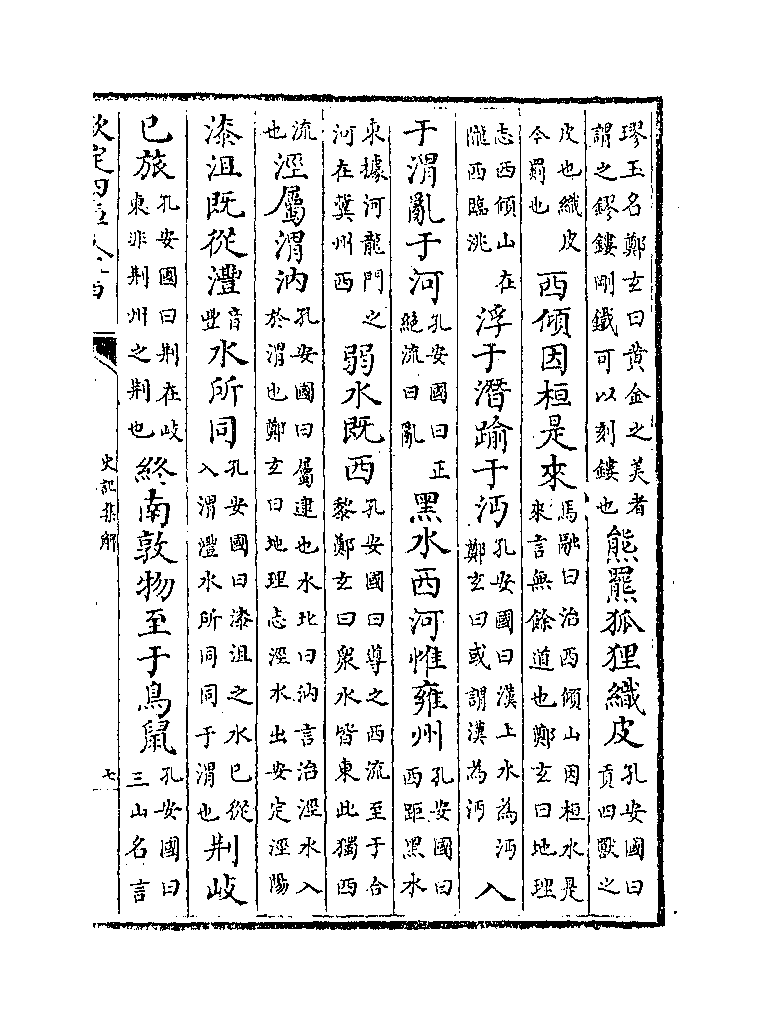 璆玉名鄭玄曰黄金之美者謂之鏐鏤剛鐵可以刻鏤也熊羆狐狸織皮孔安國曰貢四獸之
皮也織皮今罽也西傾因桓是來馬融曰治西傾山因桓水是來言無餘道也鄭玄曰地理
志西傾山在隴西臨洮浮于潛踰于沔孔安國曰漢上水為沔鄭玄曰或謂漢為沔入
于渭亂于河孔安國曰正絶流曰亂黑水西河惟雍州孔安國曰西距黑水
東據河龍門之河在冀州西弱水既西孔安國曰導之西流至于合黎鄭玄曰衆水皆東此獨西
流也涇屬渭汭孔安國曰屬逮也水北曰汭言治涇水入於渭也鄭玄曰地理志涇水出安定涇陽
漆沮既從灃音豐水所同孔安國曰漆沮之水已從入渭灃水所同同于渭也荆岐
已旅孔安國曰荆在岐東非荆州之荆也終南敦物至于鳥鼠孔安國曰三山名言
欽定四庫全書
史記集解
七